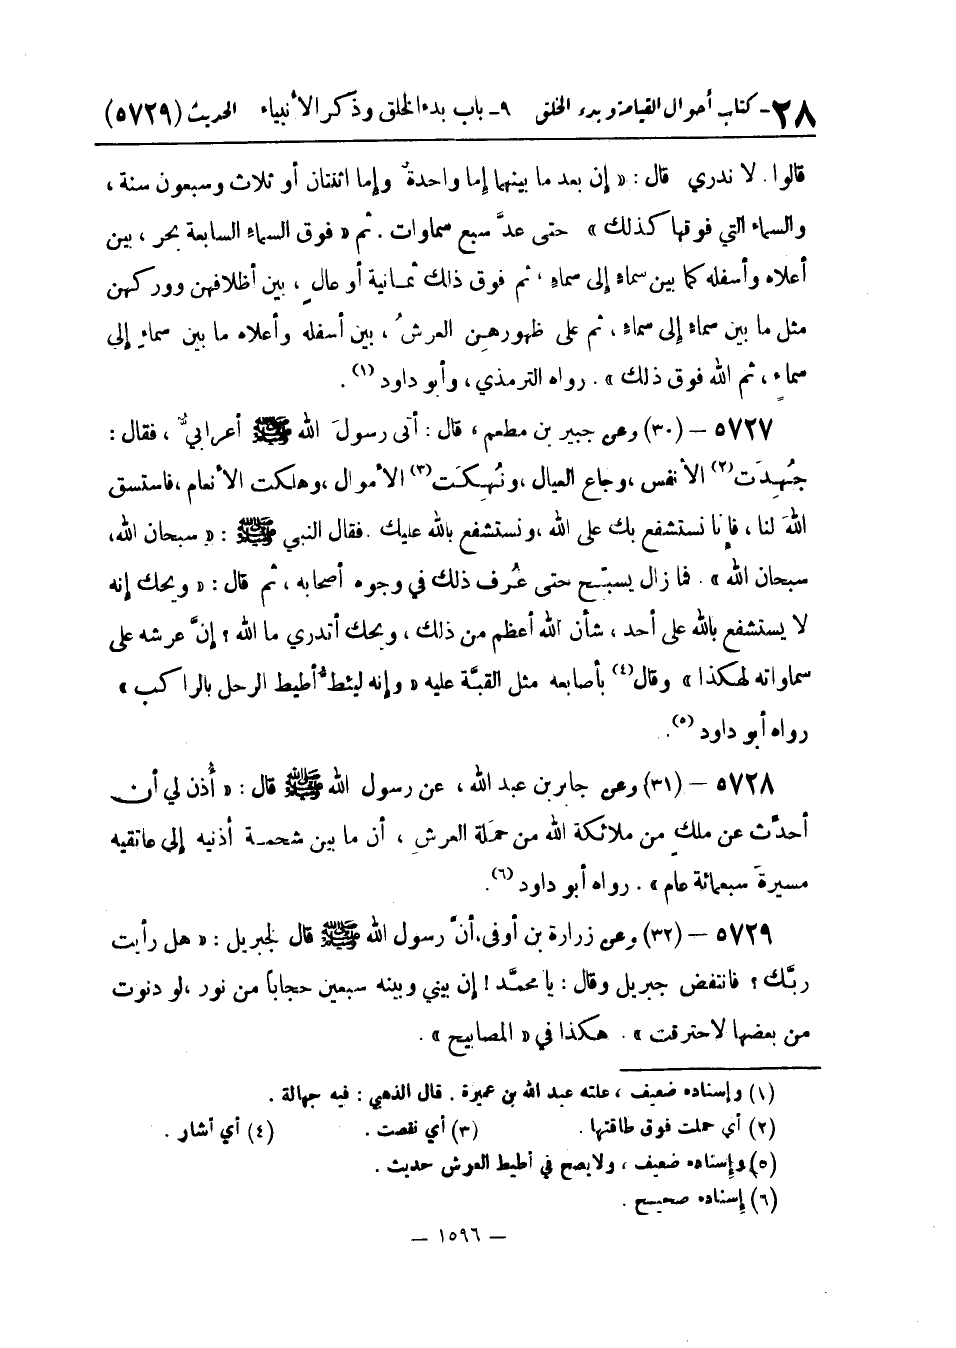 ٢٨- كتاب أحوال القيامة وبدء الخلق ٩- باب بدء الخلق وذكر الأنبياء الحديث (٥٧٢٩)
قالوا. لا ندري قال : « إن بعد ما بينهما إما واحدةٌ وإما اثنتان أو ثلاث وسبعون سنة ،
والسماء التي فوقها كذلك » حتى عدَّ سبع سماوات . ثم « فوق السماء السابعة بحر ، بين
أعلاه وأسفله كما بين سماءٍ إلى سماءٍ ، ثم فوق ذلك ثمانية أو عالٍ ، بين أظلافهن ووركهن
مثل ما بين سماءٍ إلى سماءٍ ، ثم على ظهورهن العرشُ ، بين أسفله وأعلاه ما بين سماءٍ إلى
سماءٍ ، ثم الله فوق ذلك » . رواه الترمذي ، وأبو داود (١) .
٥٧٢٧ – (٣٠) وعن جبير بن مطعم ، قال : أتى رسولَ الله ﷺ أعرابيٌّ ، فقال :
جُهِدَت (٢) الأنفس ، وجاع العيال ، ونُهِكَت (٣) الأموال ، وهلكت الأنعام ، فاستسق
اللهَ لنا ، فإنا نستشفع بك على الله ، ونستشفع بالله عليك . فقال النبي ﷺ : « سبحان الله،
سبحان الله » . فما زال يسبّح حتى عُرف ذلك في وجوه أصحابه ، ثم قال : « ويحك إنه
لا يستشفع بالله على أحد ، شأن الله أعظم من ذلك ، ويحك أتدري ما الله ؟ إنَّ عرشه على
سماواته لهكذا » وقال (٤) بأصابعه مثل القبَّة عليه « وإنه ليئطُّ أطيط الرحل بالراكب »
رواه أبو داود (٥) .
٥٧٢٨ – (٣١) وعن جابر بن عبد الله ، عن رسول الله ﷺ قال : « أُذن لي أن
أحدِّث عن ملكٍ من ملائكة الله من حمَلة العرشِ ، أن ما بين شحمة أذنيه إلى عاتقيه
مسيرةَ سبعمائة عام » . رواه أبو داود (٦) .
٥٧٢٩ – (٣٢) وعن زرارة بن أوفى، أنَّ رسول الله ﷺ قال لجبريل : « هل رأيت
ربَّك ؟ فانتفض جبريل وقال : يا محمَّد ! إن بيني وبينه سبعين حجاباً من نور ، لو دنوت
من بعضها لاحترقت » . هكذا في « المصابيح » .
(١) وإسناده ضعيف ، علته عبد الله بن عميرة . قال الذهبي : فيه جهالة .
(٢) أي حملت فوق طاقتها . (٣) أي نقصت . (٤) أي أشار .
(٥) وإسناده ضعيف ، ولا يصح في أطيط العرش حديث .
(٦) إسناده صحيح .
– ١٥٩٦ –